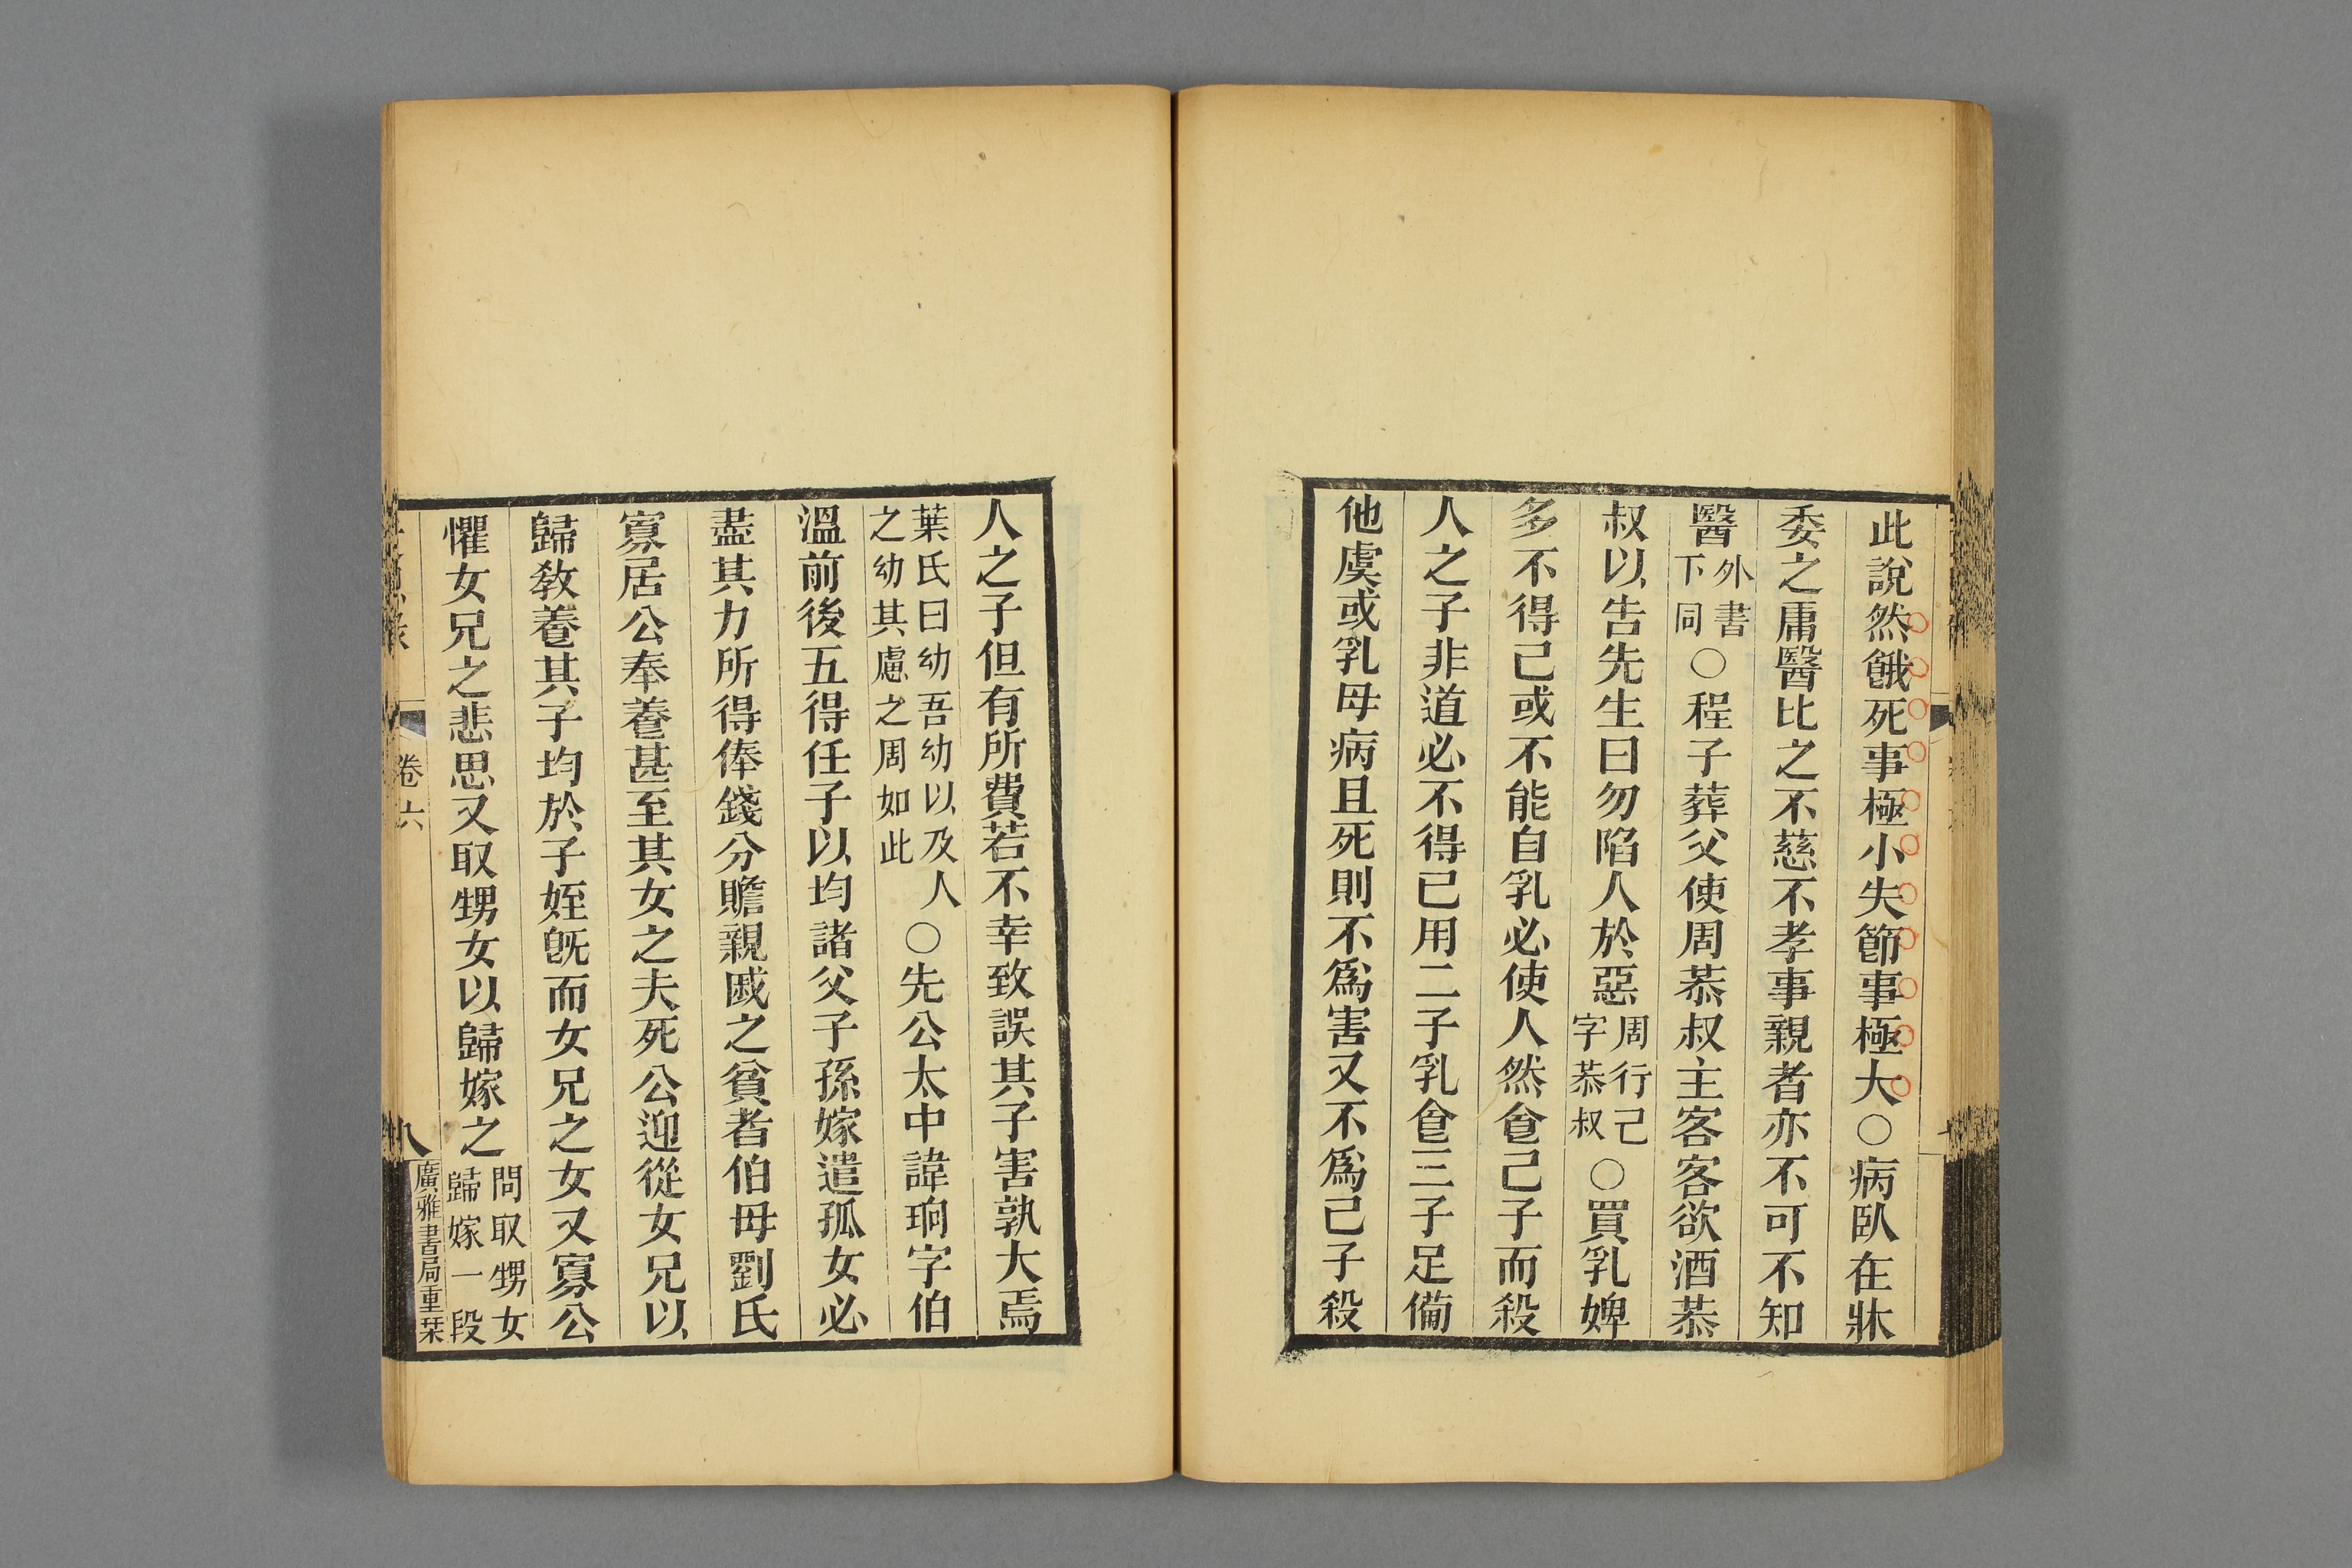 此說然餓死事極小失節事極大○病臥在牀
委之庸醫比之不慈不孝事親者亦不可不知
醫外書下同○程子葬父使周恭叔主客客欲酒恭
叔以告先生曰勿陷人於惡周行己字恭叔○買乳婢
多不得已或不能自乳必使人然食己子而殺
人之子非道必不得已用二子乳食三子足備
他虞或乳母病且死則不爲害又不爲己子殺
人之子但有所費若不幸致誤其子害孰大焉
葉氏曰幼吾幼以及人之幼其慮之周如此○先公太中諱珦字伯
溫前後五得任子以均諸父子孫嫁遣孤女必
盡其力所得俸錢分贍親戚之貧者伯母劉氏
寡居公奉養甚至其女之夫死公迎從女兄以
歸敎養其子均於子姪旣而女兄之女又寡公
懼女兄之悲思又取甥女以歸嫁之問取甥女歸嫁一段
卷六
八
廣雅書局重栞